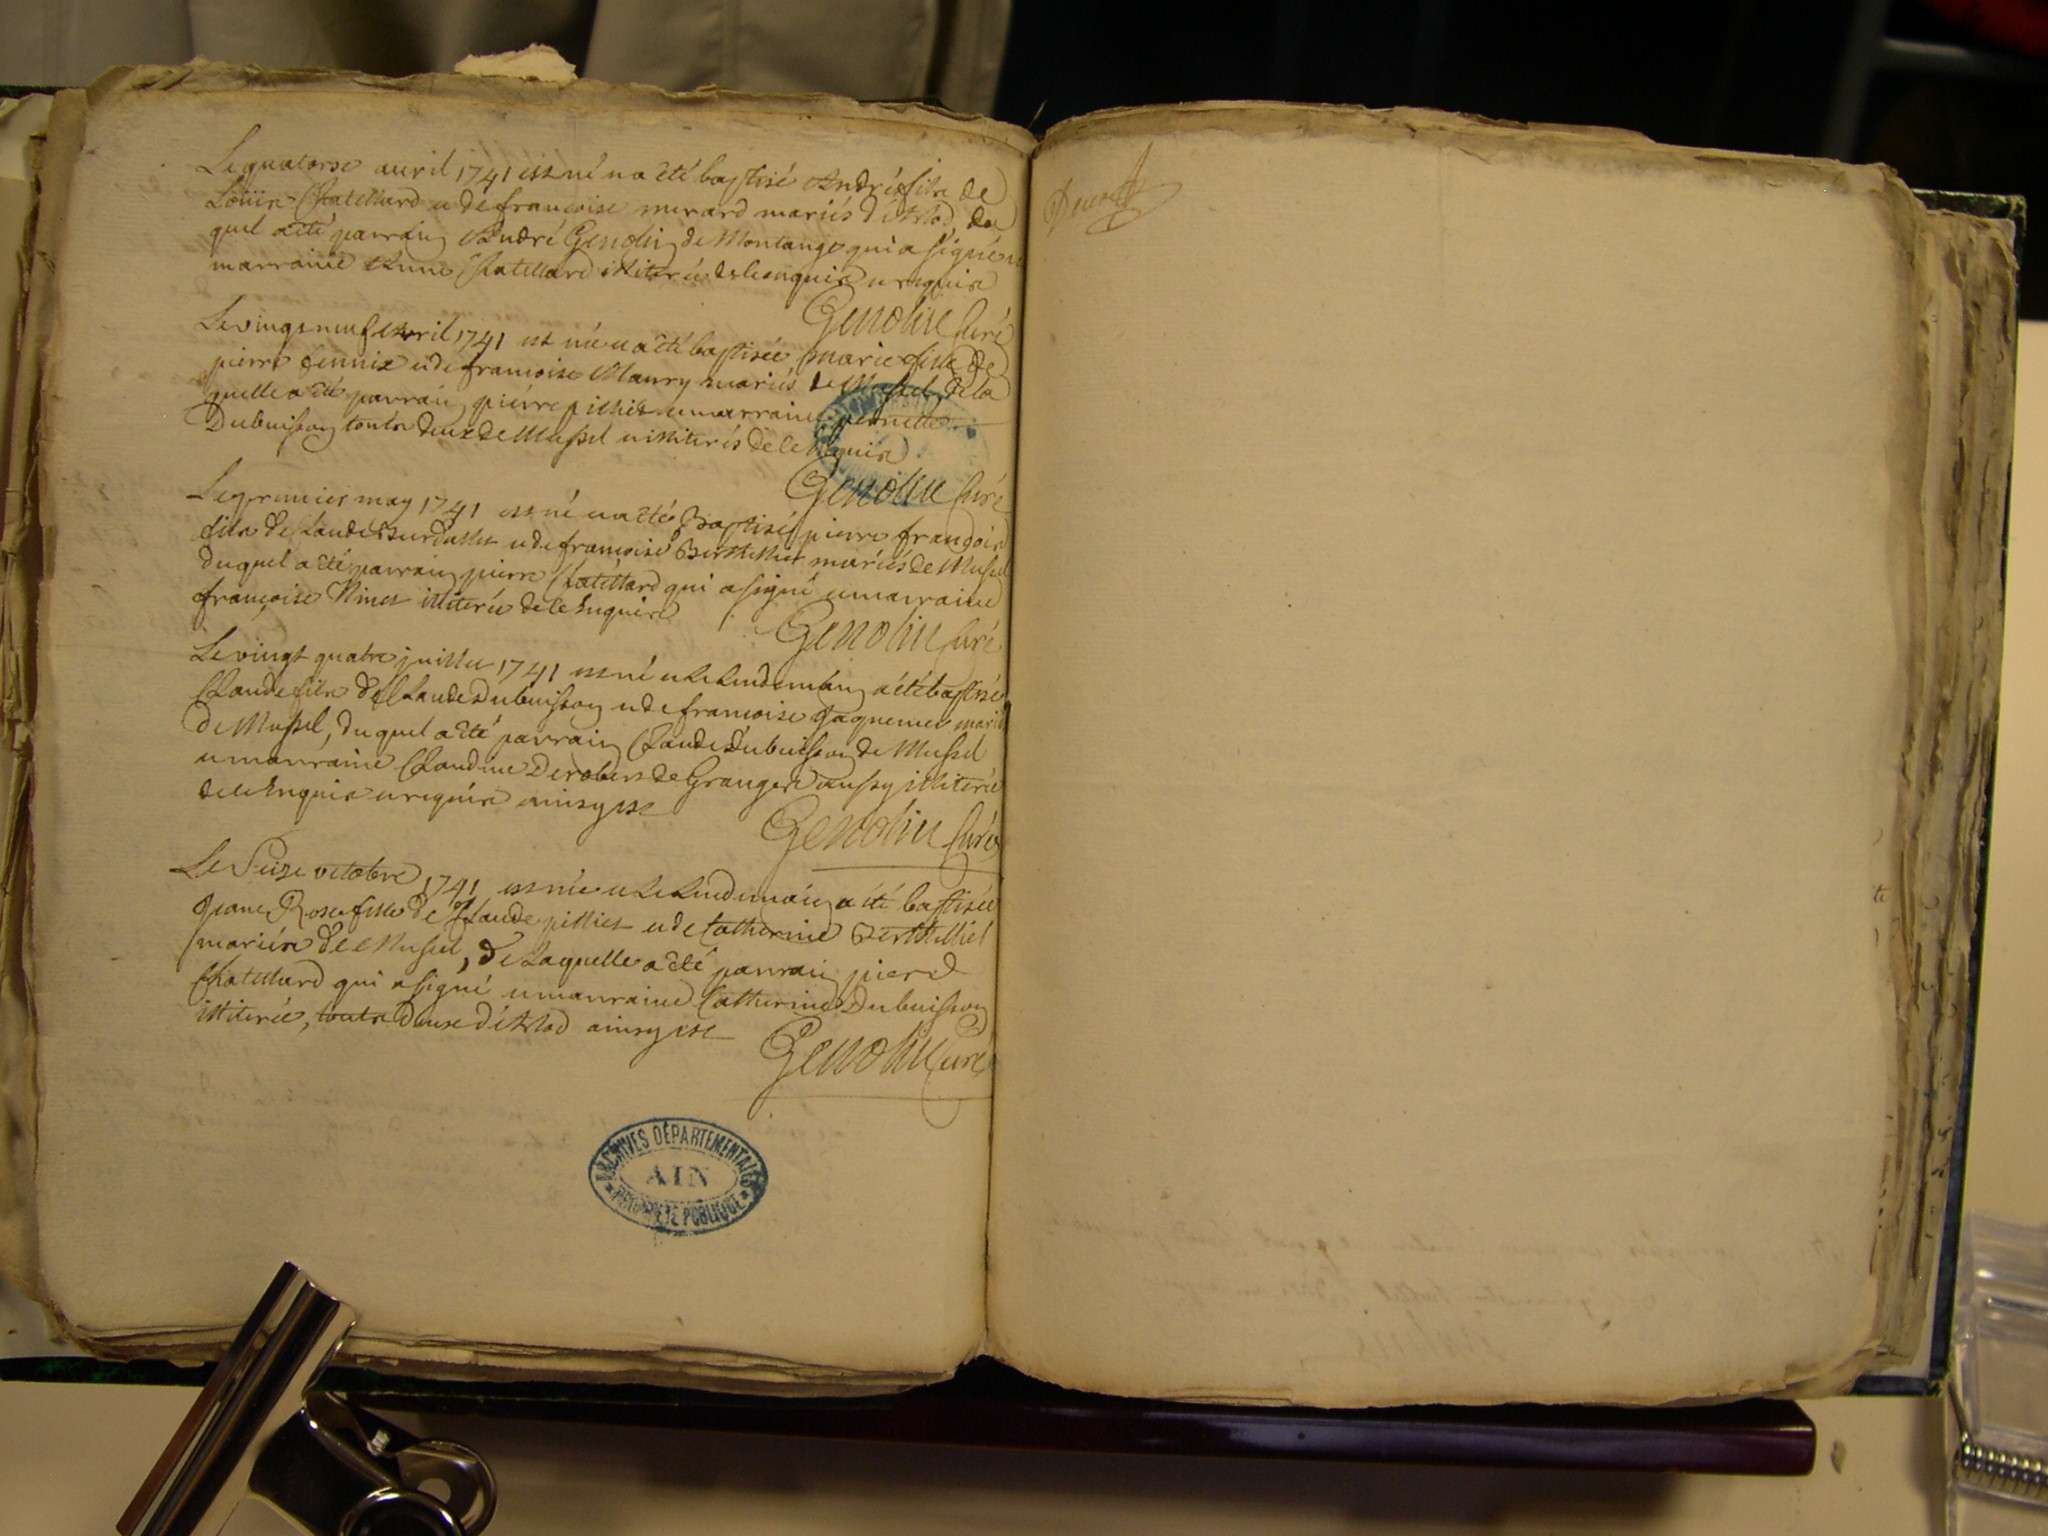 Le quatorse avril 1741 est né et a été baptisé André fils de
Loüis Chatillard et de françoise mirard mariés d'Arlod, du
quel a été parrain André Genolin de Montange qui a signé et
marraine Anne Chatillard illiterée de ce enquis et requis
Genolin Curé
Le vingt neuf avril 1741 est née et a été baptisée marie fille de
pierre et de françoise Maury mariés de Mussel, de la
quelle a été parrain pierre pilliet et marraine pernette
Dubuisson touts deux de Mussel illiterés de ce enquis
Genolin Curé
Le premier may 1741 est né et a été Baptisé pierre françois
fils de Claude Burdallet et de françoise Berthillier mariés de Mussel
duquel a été parrain pierre Chatillard qui a signé et marraine
françoise Ninet illiterée de ce Enquise
Genolin Curé
Le vingt quatre juillet 1741 est né et le Lendemain a été baptisé
Claude fils de Claude Dubuisson et de françoise mariés
de Mussel, duquel a été parrain Claude Dubuisson de Mussel
et marraine Claudine Derobert de Granges aussy illiterée
de ce Enquis et requis ainsy est
Genolin Curé
Le Seize octobre 1741 est née et le Lendemain a été baptisée
Jeane Rose fille de Claude pilliet et de Catherine Berthillier
mariés de Mussel, de Laquelle a été parrain pierre
Chatillard qui a signé et marraine Catherine Dubuisson
illiterée, touts deux d'Arlod ainsy est
Genolin Curé
ARCHIVES DÉPARTEMENTALES
AIN
PROPRIÉTÉ PUBLIQUE